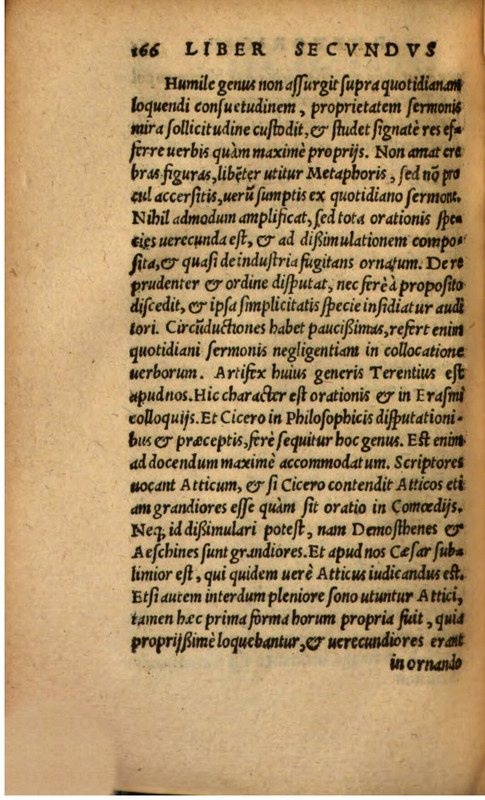 166 LIBER SECVNDVS
Humile genus non aſſurgit ſupra quotidianam
loquendi conſuetudinem, proprietatem ſermonis
mira ſollicitudine cuſtodit, & ſtudet ſignatè res ef-
ferre uerbis quàm maximè proprijs. Non amat cre
bras figuras, libẽter utitur Metaphoris, ſed nõ pro
cul accerſitis, uerũ ſumptis ex quotidiano ſermone.
Nihil admodum amplificat, ſed tota orationis ſpe-
cies uerecunda eſt, & ad dißimulationem compo-
ſita, & quaſi de induſtria fugitans ornatum. De re
prudenter & ordine diſputat, nec ferè à propoſito
diſcedit, & ipſa ſimplicitatis ſpecie inſidiatur audi
tori. Circũductiones habet paucißimas, refert enim
quotidiani ſermonis negligentiam in collocatione
uerborum. Artifex huius generis Terentius eſt
apud nos. Hic character eſt orationis & in Eraſmi
colloquijs. Et Cicero in Philoſophicis diſputationi-
bus & præceptis, ferè ſequitur hoc genus. Eſt enim
ad docendum maximè accommodatum. Scriptores
uocant Atticum, & ſi Cicero contendit Atticos eti
am grandiores eſſe quàm ſit oratio in Comœdijs.
Neq; id dißimulari poteſt, nam Demoſthenes &
Aeſchines ſunt grandiores. Et apud nos Cæſar ſub-
limior eſt, qui quidem uerè Atticus iudicandus eſt.
Etſi autem interdum pleniore ſono utuntur Attici,
tamen hæc prima forma horum propria fuit, quia
proprijßimè loquebantur, & uerecundiores erant
in ornando